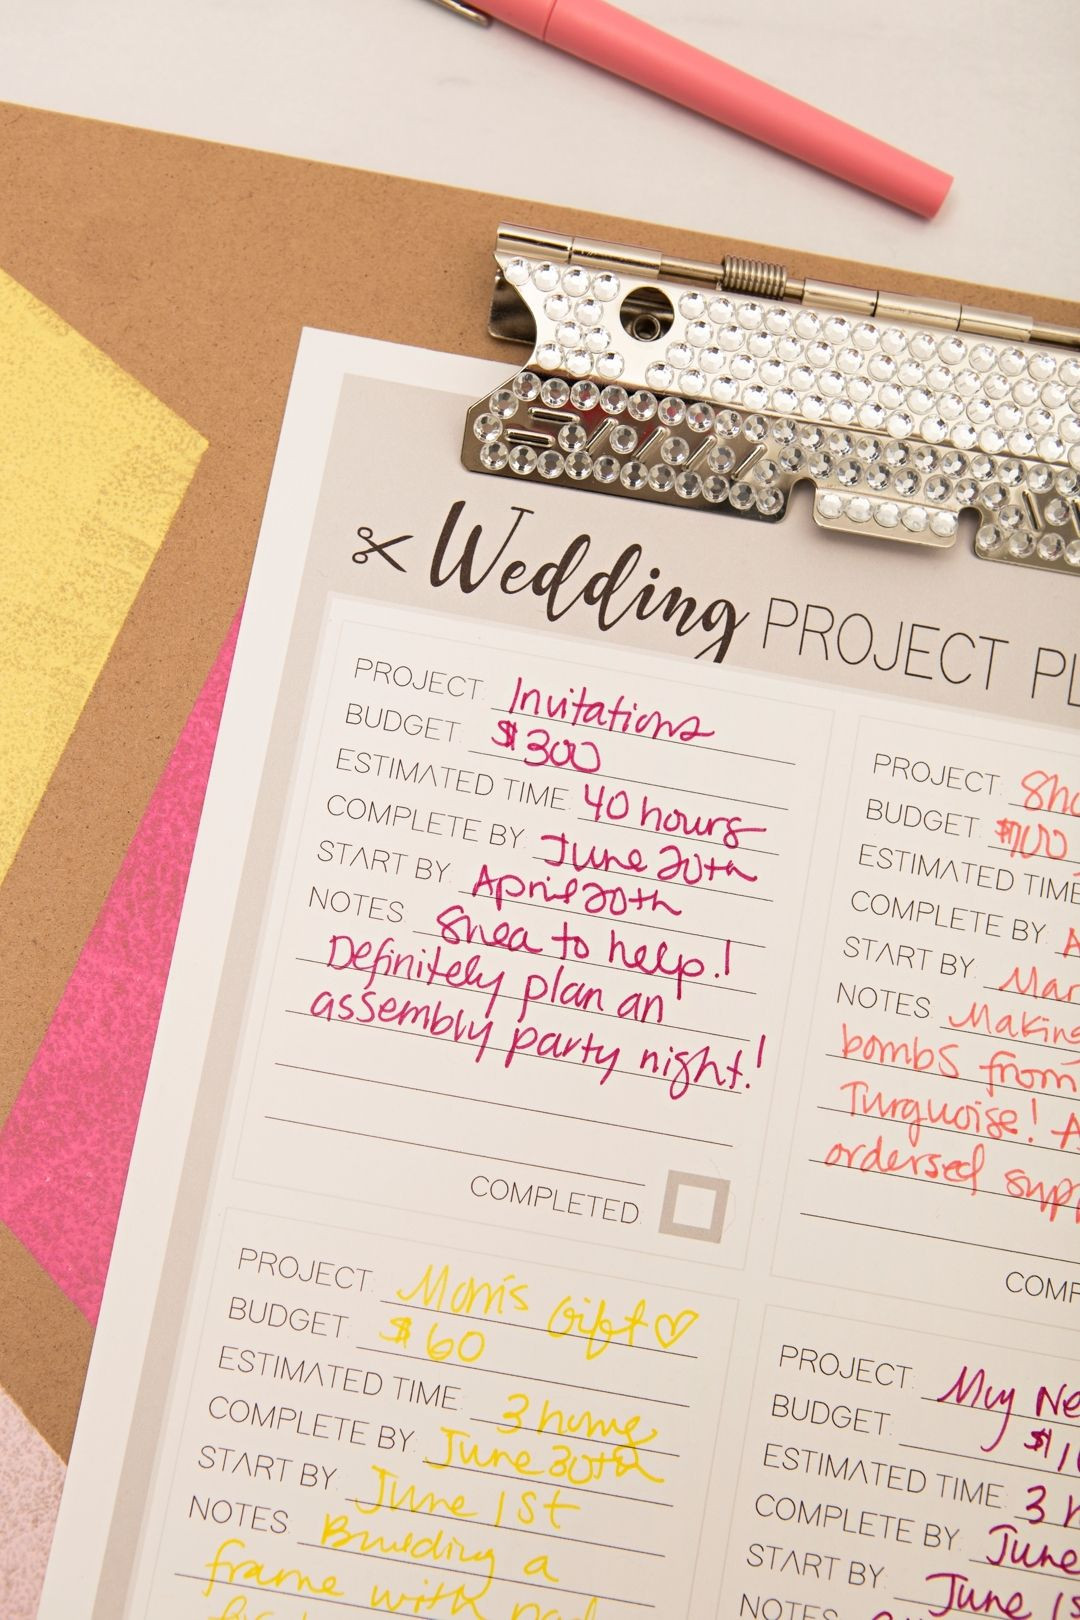 Wedding PROJECT PL
PROJECT: Invitations
BUDGET: $300
ESTIMATED TIME: 40 hours
COMPLETE BY: June 20th
START BY: April 20th
NOTES: Shea to help!
Definitely plan an
assembly party night!
COMPLETED:
PROJECT:
BUDGET: $100
ESTIMATED TIME
COMPLETE BY:
START BY: Mar
NOTES: Making
bombs from
Turquoise! A
ordersed supp
COMP
PROJECT: Mom's Gift ♡
BUDGET: $60
ESTIMATED TIME: 3 hours
COMPLETE BY: June 30th
START BY: June 1st
NOTES: Building a
frame with
PROJECT: My Ne
BUDGET: $1
ESTIMATED TIME: 3
COMPLETE BY: June
START BY: June 1s
NOTES